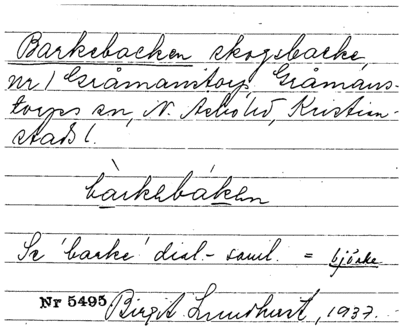 Barkebacken skogsbacke,
nr 1 Gråmanstorp, Gråmans-
torps sn, N. Åsbo hd, Kristian-
stads l.
bàrkebáken
Se 'barke' dial.- saml. = björke
Nr 5495 Birgit Lundhurst, 1937.